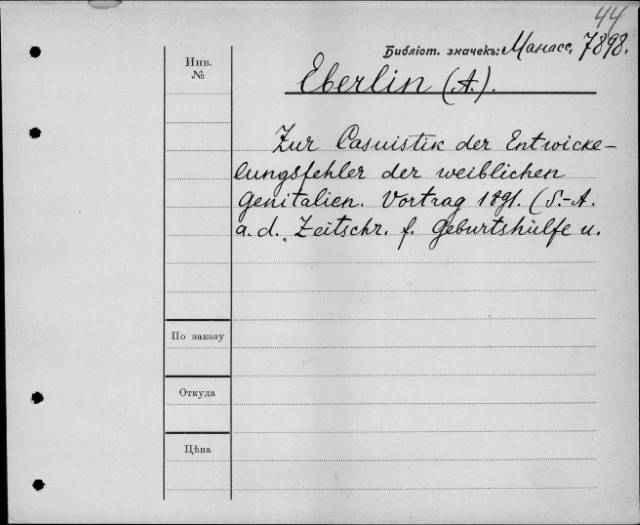 44
Библіот. значекъ: Манасс. 7898.
Инв.
№
Eberlin (A.).
Zur Casuistik der Entwicke-
lungsfehler der weiblichen
Genitalien. Vortrag 1891. (S.-A.
a. d. „Zeitschr. f. Geburtshülfe u.
По заказу
Откуда
Цѣна